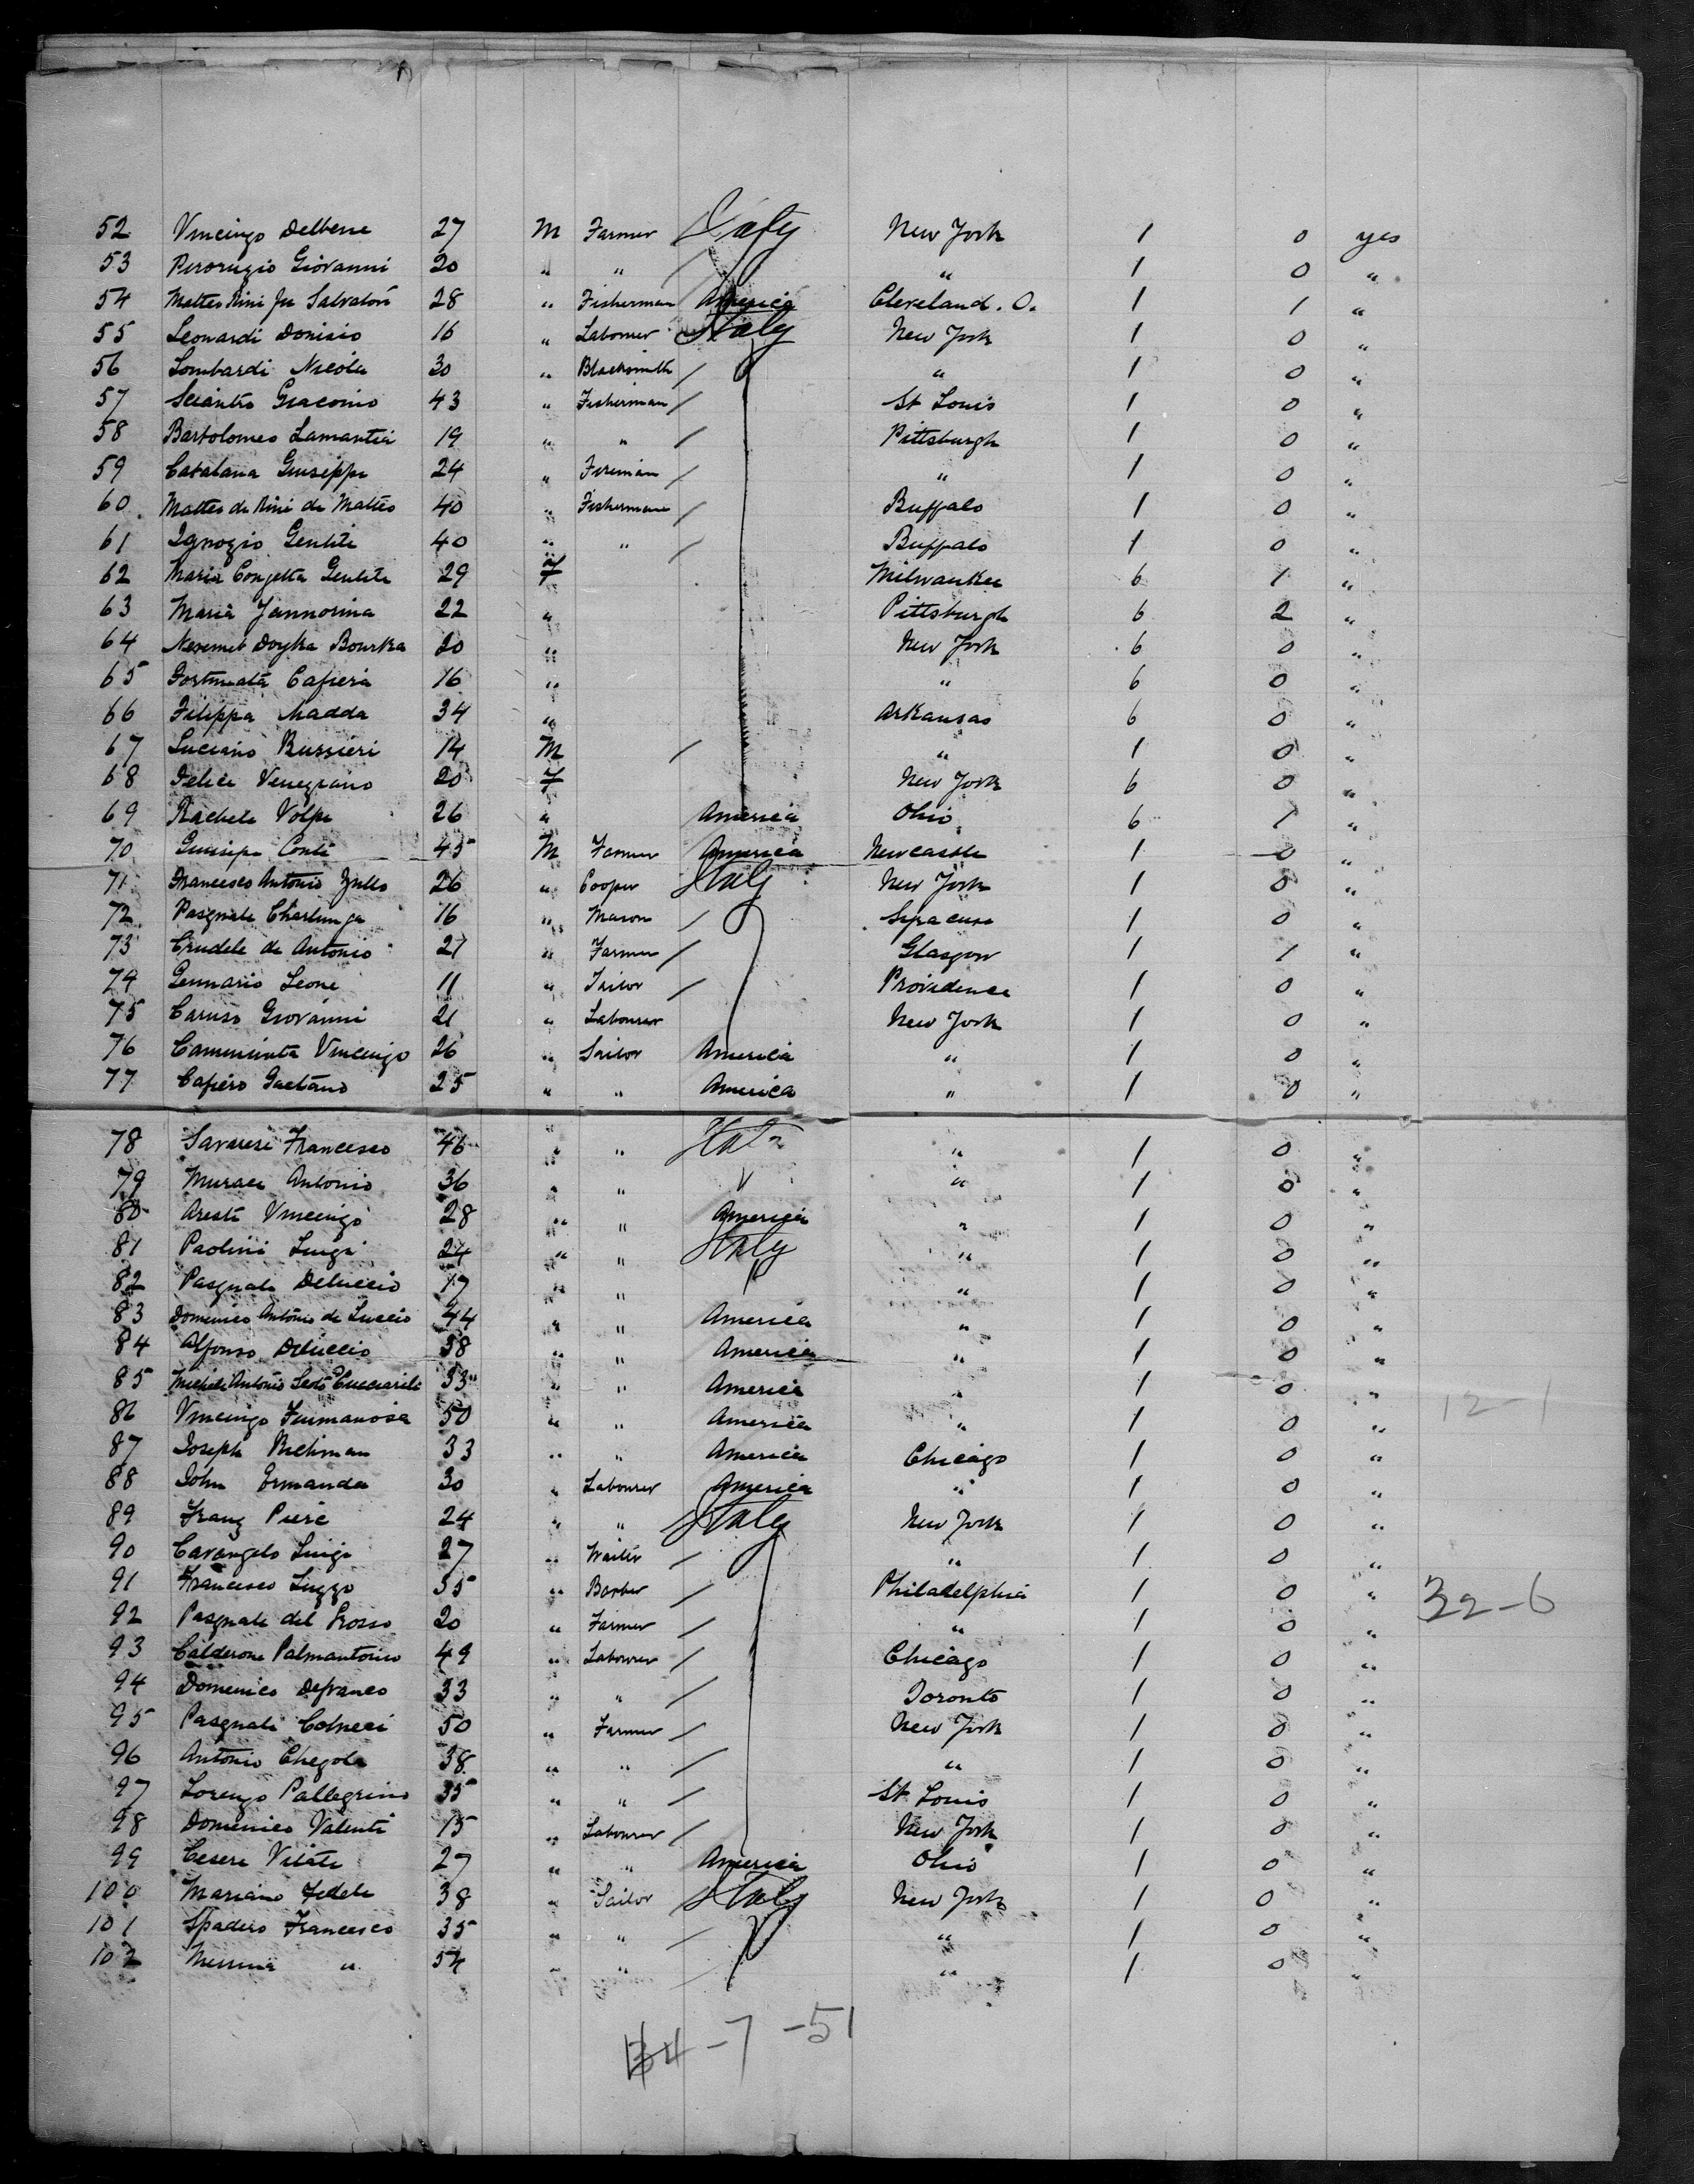 52 Vincenzo Delbene 27 M Farmer Italy New York 1 0 yes
53 Giovanni 20 " " / " 1 0 "
54 Matteo Rini fu Salvatore 28 " Fisherman America Cleveland. O. 1 1 "
55 Leonardi Donisio 16 " Labourer Italy New York 1 0 "
56 Lombardi Nicola 30 " Blacksmith / " 1 0 "
57 Scianto Giacomo 43 " Fisherman / St Louis 1 0 "
58 Bartolomeo Lamantia 19 " " / Pittsburgh 1 0 "
59 Catalana Giuseppe 24 " Fireman / " 1 0 "
60 Matteo de Rini de Matteo 40 " Fisherman / Buffalo 1 0 "
61 Ignazio Gentile 40 " " / Buffalo 1 0 "
62 Maria Conzetta Gentile 29 F Milwaukee 6 1 "
63 Maria Jannorina 22 " Pittsburgh 6 2 "
64 Bourka 20 " New York 6 0 "
65 Fortunata Cafiera 16 " " 6 0 "
66 Filippa Madda 34 " Arkansas 6 0 "
67 Luciano Bussieri 14 M / " 1 0 "
68 Felice Veneziano 20 F New York 6 0 "
69 Rachele Volpe 26 " America Ohio 6 1 "
70 Guisepe Conti 45 M Farmer America Newcastle 1 0 "
71 Francesco Antonio Zullo 26 " Cooper Italy New York 1 0 "
72 Pasquale 16 " Mason / Syracuse 1 0 "
73 Crudele de Antonio 21 " Farmer / Glasgow 1 1 "
74 Gennario Leone 11 " Tailor / Providence 1 0 "
75 Caruso Giovanni 21 " Labourer New York 1 0 "
76 Vincenzo 26 " Sailor America " 1 0 "
77 Cafiero Gaetano 25 " " America " 1 0 "
78 Savarese Francesco 46 " " Italy " 1 0 "
79 Murace Antonio 36 " " " 1 0 "
80 Aresti Vincenzo 28 " " America " 1 0 "
81 Paolini Luigi 24 " " Italy " 1 0 "
82 Pasquale Deluccio 17 " " " " 1 0 "
83 Domenico Antonio de Luccio 44 " " America " 1 0 "
84 Alfonso Deluccio 38 " " America " 1 0 "
85 Michele Antonio 33 " " America " 1 0 "
12-1
86 Vincenzo Fiumanosa 50 " " America " 1 0 "
87 Joseph 33 " " America Chicago 1 0 "
88 John Ermanda 30 " Labourer America " 1 0 "
89 Franz Piere 24 " " Italy New York 1 0 "
90 Cavangelo Luigi 27 " Waiter / " 1 0 "
91 Francesco Luzzo 35 " Barber / Philadelphia 1 0 " 32-6
92 Pasquale del Grosso 20 " Farmer / " 1 0 "
93 Calderone Palmantonio 49 " Labourer / Chicago 1 0 "
94 Domenico Defranco 33 " " / Toronto 1 0 "
95 Pasquale 50 " Farmer / New York 1 0 "
96 Antonio Chegola 38 " " / " 1 0 "
97 Lorenzo Pallegrino 35 " " / St Louis 1 0 "
98 Domenico Valenti 15 " Labourer / New York 1 0 "
99 Cesere Vitate 27 " " America Ohio 1 0 "
100 Mariano Fedele 38 " Sailor Italy New York 1 0 "
101 Spadero Francesco 35 " " / " 1 0 "
102 Messina " 54 " " / " 1 0 "
4-7-51